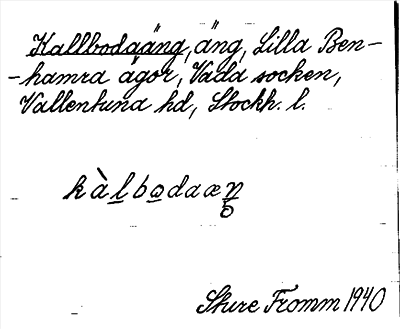 Kallbodaäng, äng, Lilla Ben-
-hamra ägor, Vada socken,
Vallentuna hd, Stockh. l.
kàlbodaæŋ
Sture Fromm 1940